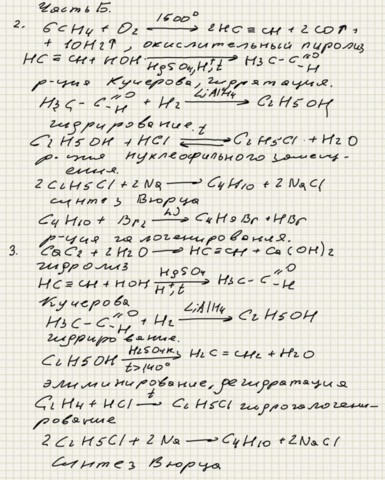 Часть Б.
2. 6CH₄ + O₂ —1500°→ 2HC≡CH + 2CO↑ +
+ 10H₂↑, окислительный пиролиз
HC≡CH + HOH —HgSO₄, H⁺, t→ H₃C-C(=O)-H
р-ция Кучерова, гидратация.
H₃C-C(=O)-H + H₂ —LiAlH₄→ C₂H₅OH
гидрирование.
C₂H₅OH + HCl ⇄ᵗ C₂H₅Cl + H₂O
р-ция нуклеофильного замещ-
ения.
2C₂H₅Cl + 2Na → C₄H₁₀ + 2NaCl
синтез Вюрца
C₄H₁₀ + Br₂ —hν→ C₄H₉Br + HBr
р-ция галогенирования.
3. CaC₂ + 2H₂O → HC≡CH + Ca(OH)₂
гидролиз
HC≡CH + HOH —HgSO₄, H⁺, t→ H₃C-C(=O)-H
Кучерова
H₃C-C(=O)-H + H₂ —LiAlH₄→ C₂H₅OH
гидрирование.
C₂H₅OH —H₂SO₄к., t>140°→ H₂C=CH₂ + H₂O
элиминирование, дегидратация
C₂H₄ + HCl —t→ C₂H₅Cl гидрогалогени-
рование
2C₂H₅Cl + 2Na → C₄H₁₀ + 2NaCl
Синтез Вюрца